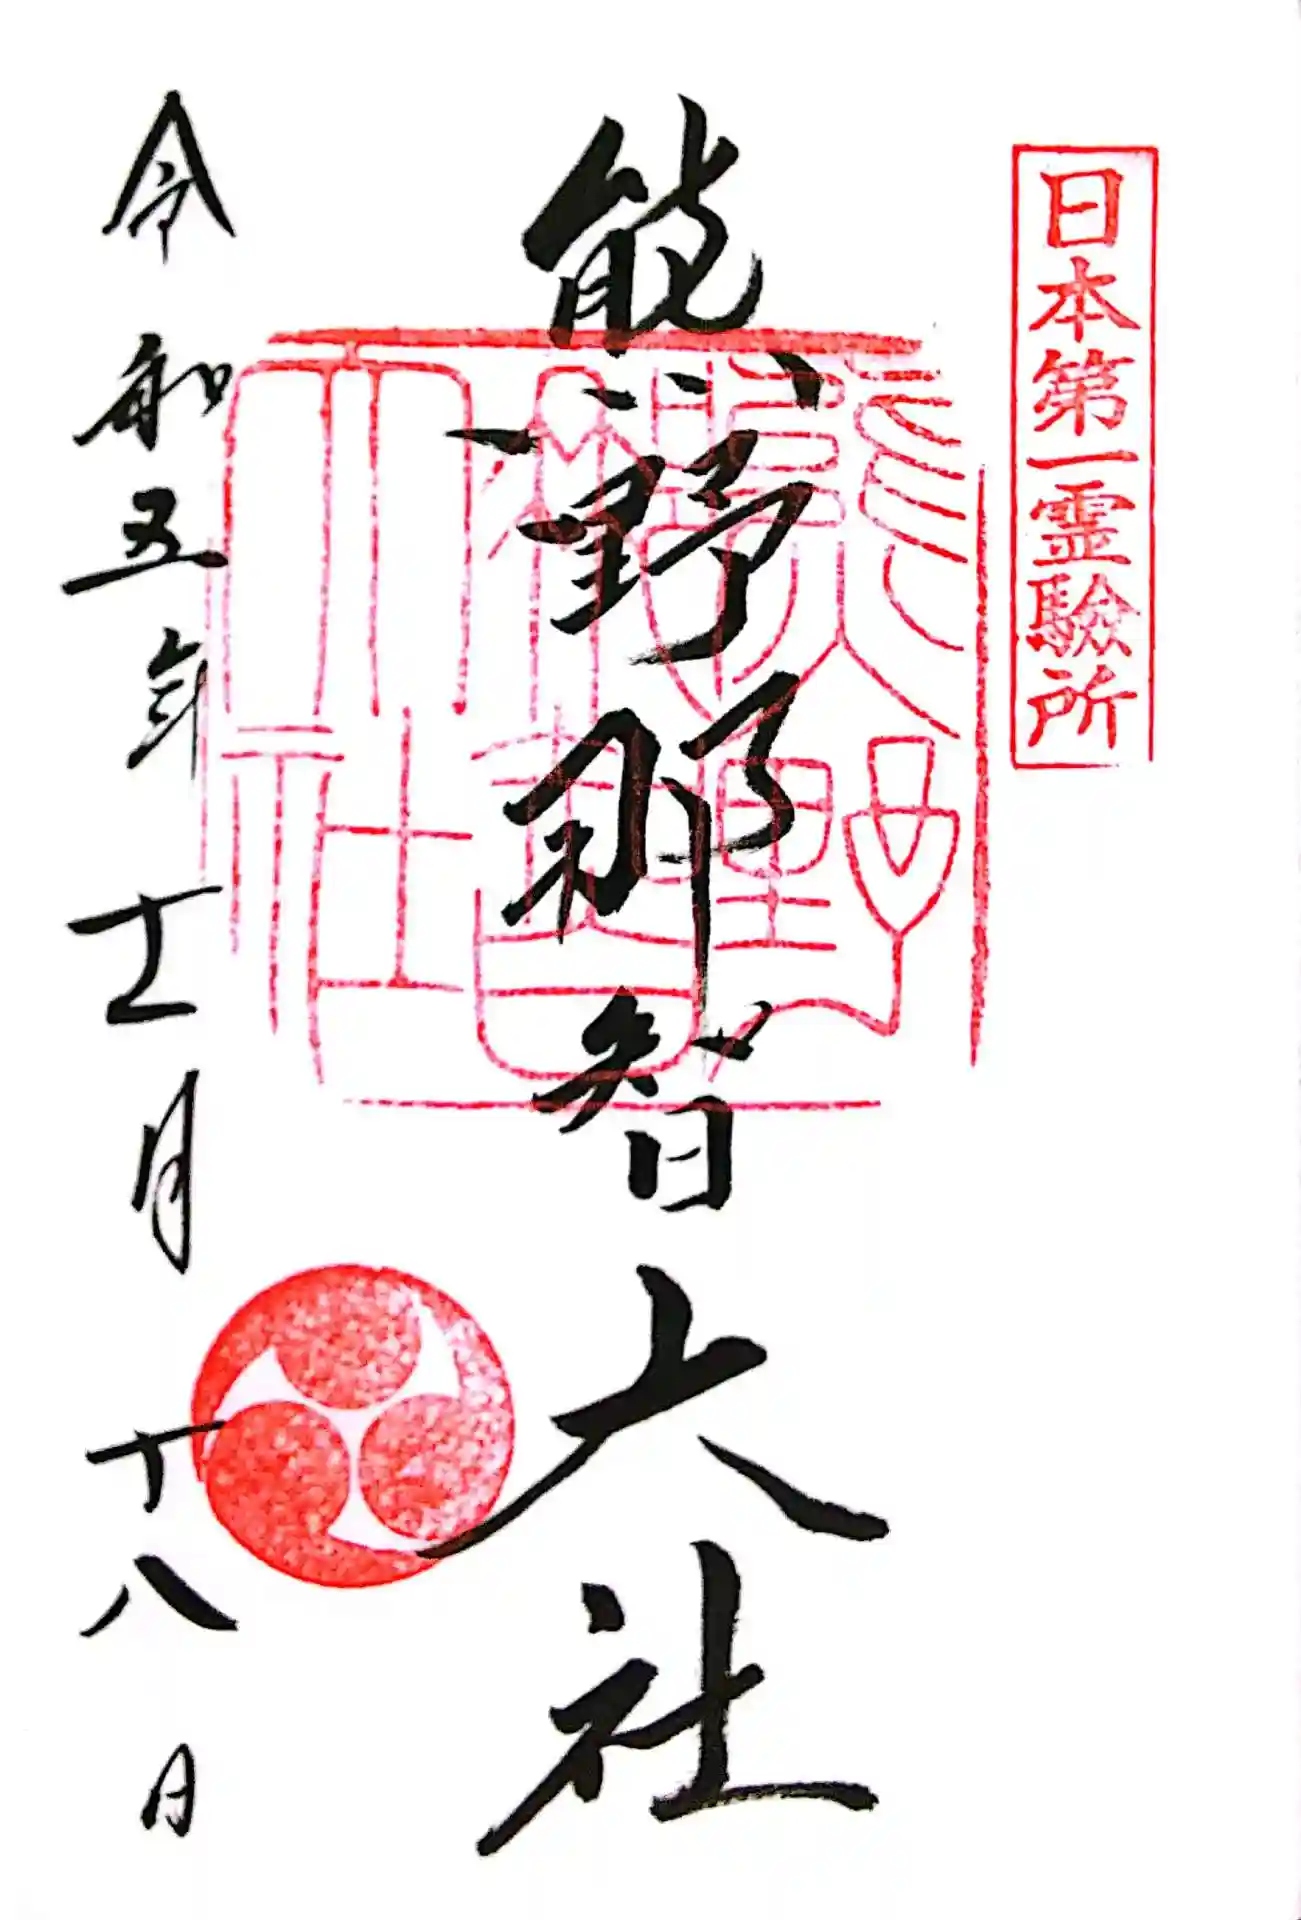 日本第一霊験所
熊野那智大社
熊野那智大社
令和五年十一月十八日